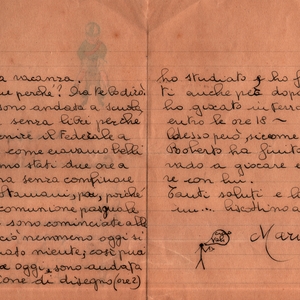 a vacanza.
perché? Ora te lo dico.
sono andata a scuola
a senza libri perché
venire il Federale a
come eravamo belli
mo stati due ore a
na senza confinare
Stamani, poi, perché
comunione pasquale
sono cominciate alle
ciò nemmeno oggi si
nato niente; così pu
e oggi, sono andata
ione di disegno (ore 2)
ho studiato e ho f
ti anche per dopo
ho giocato in terra
entro le ore 18 ~
desso però, siccome
Roberto ha finito
vado a giocare e
re con lui.
Tanti saluti e b
un... biscottino a
Mari